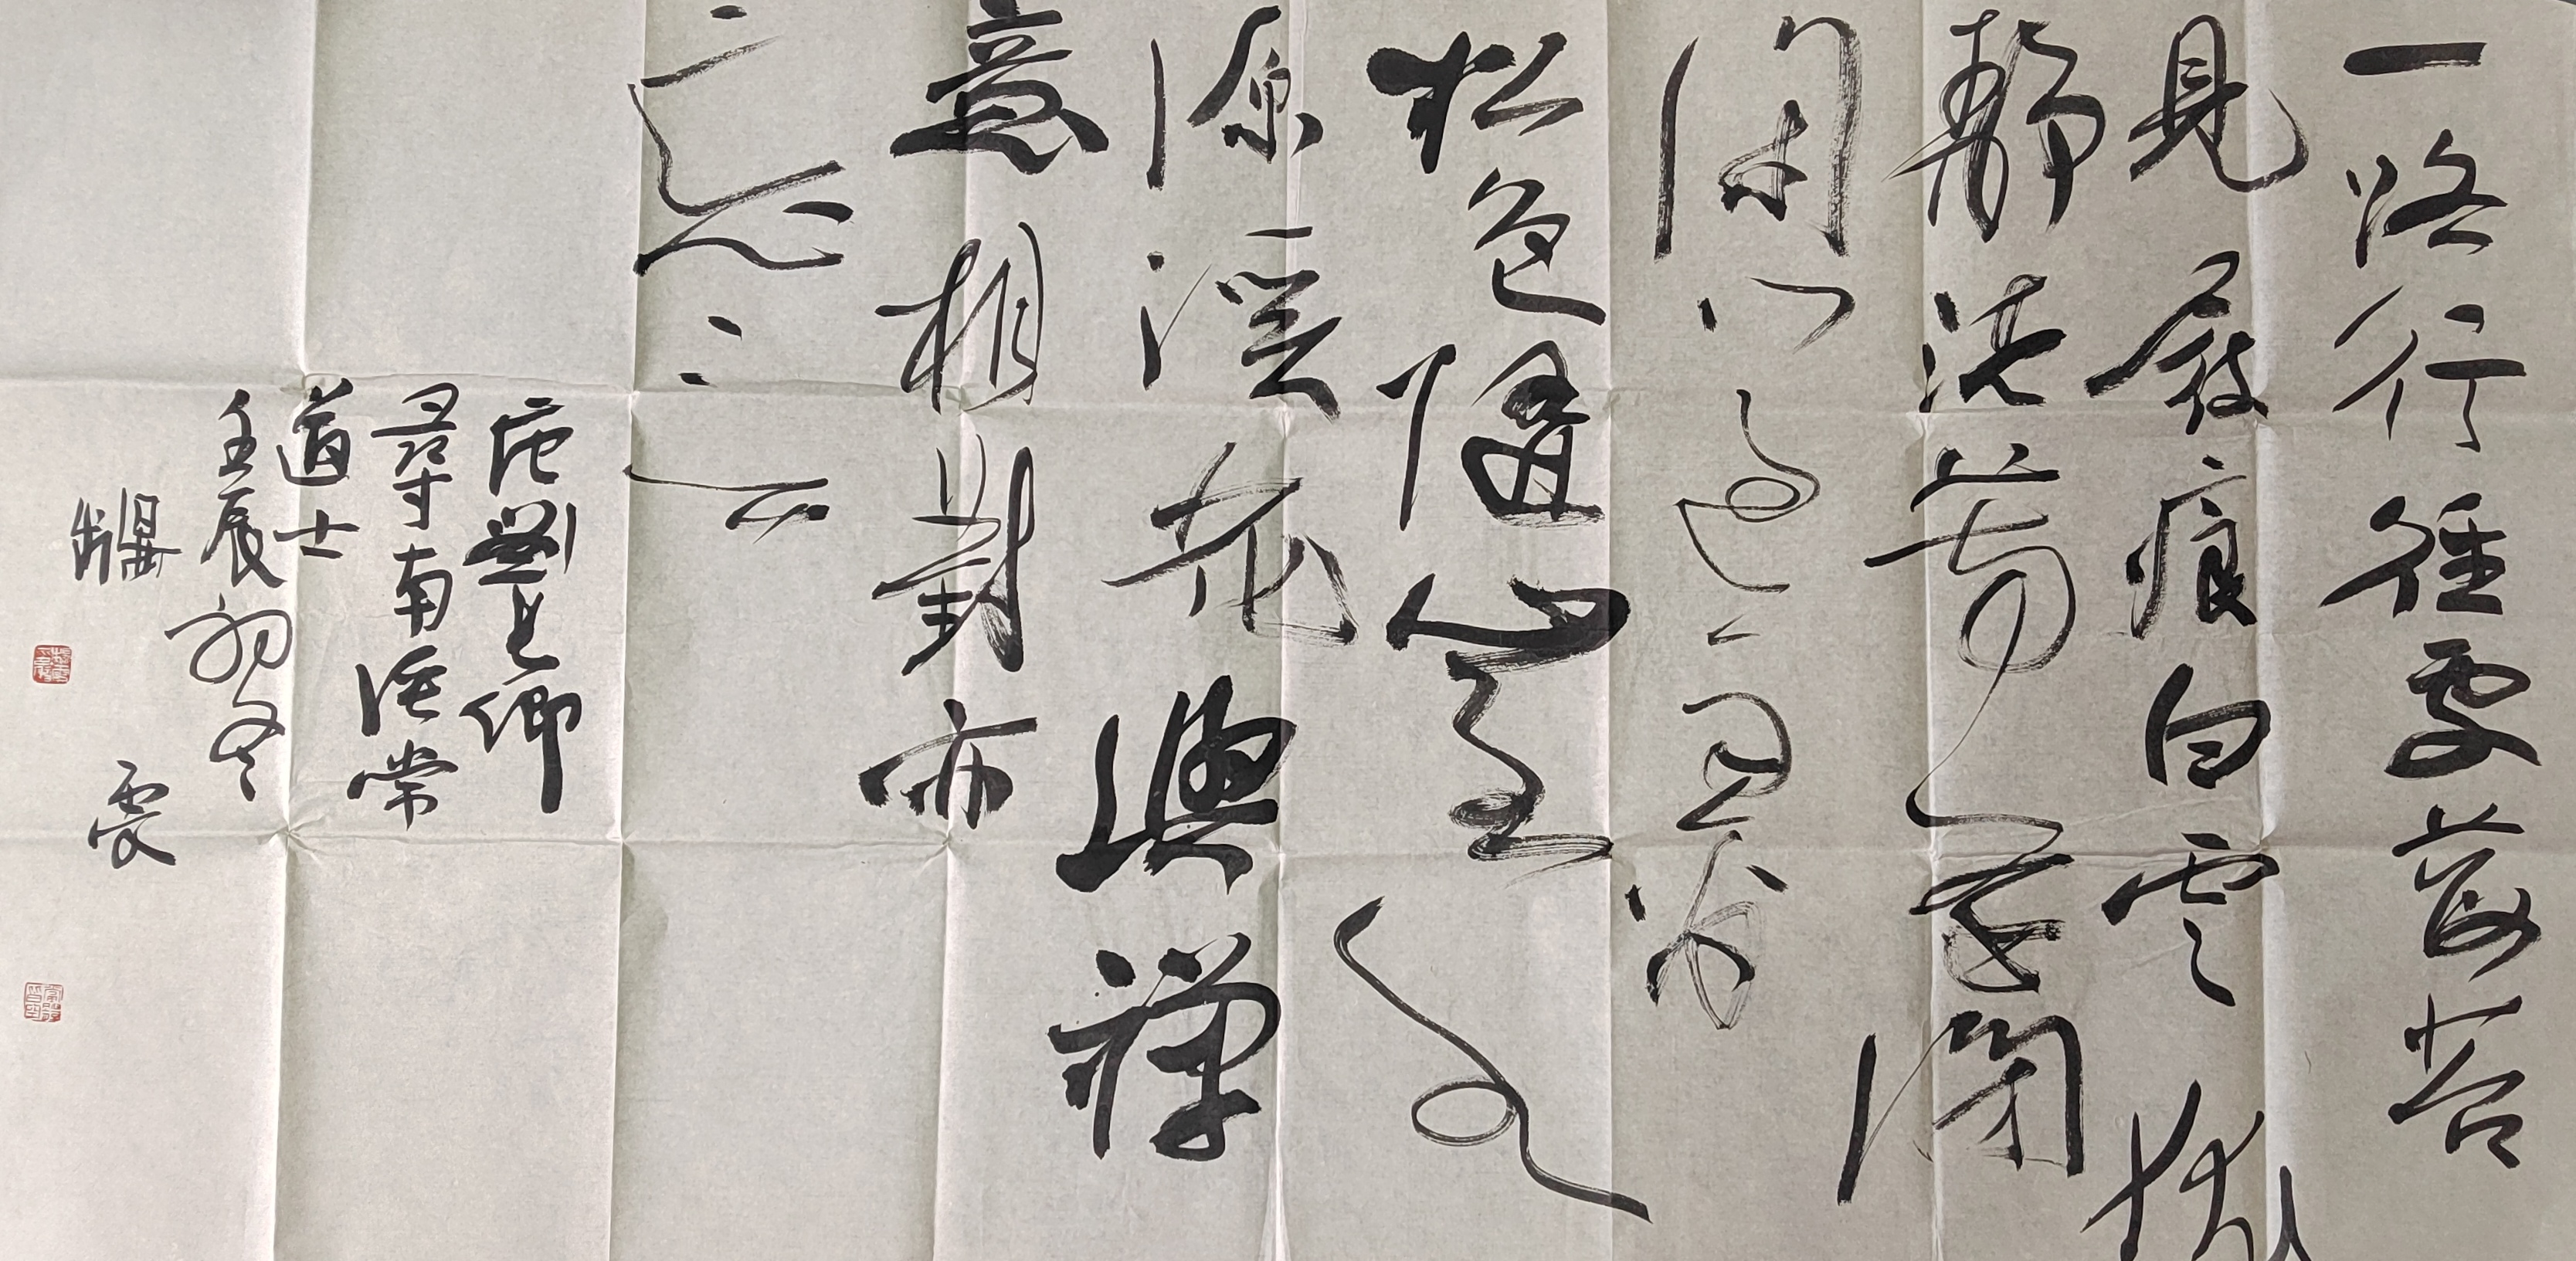 一路行經處莓苔
見屐痕白雲依
靜渚芳草閉
閑門過雨看
松色隨山至水
源溪花與禪
意相對亦
忘言
唐劉長卿
尋南溪常
道士
壬辰初冬